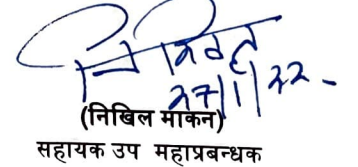 निखिल
27/1/22 -
(निखिल माकन)
सहायक उप महाप्रबन्धक